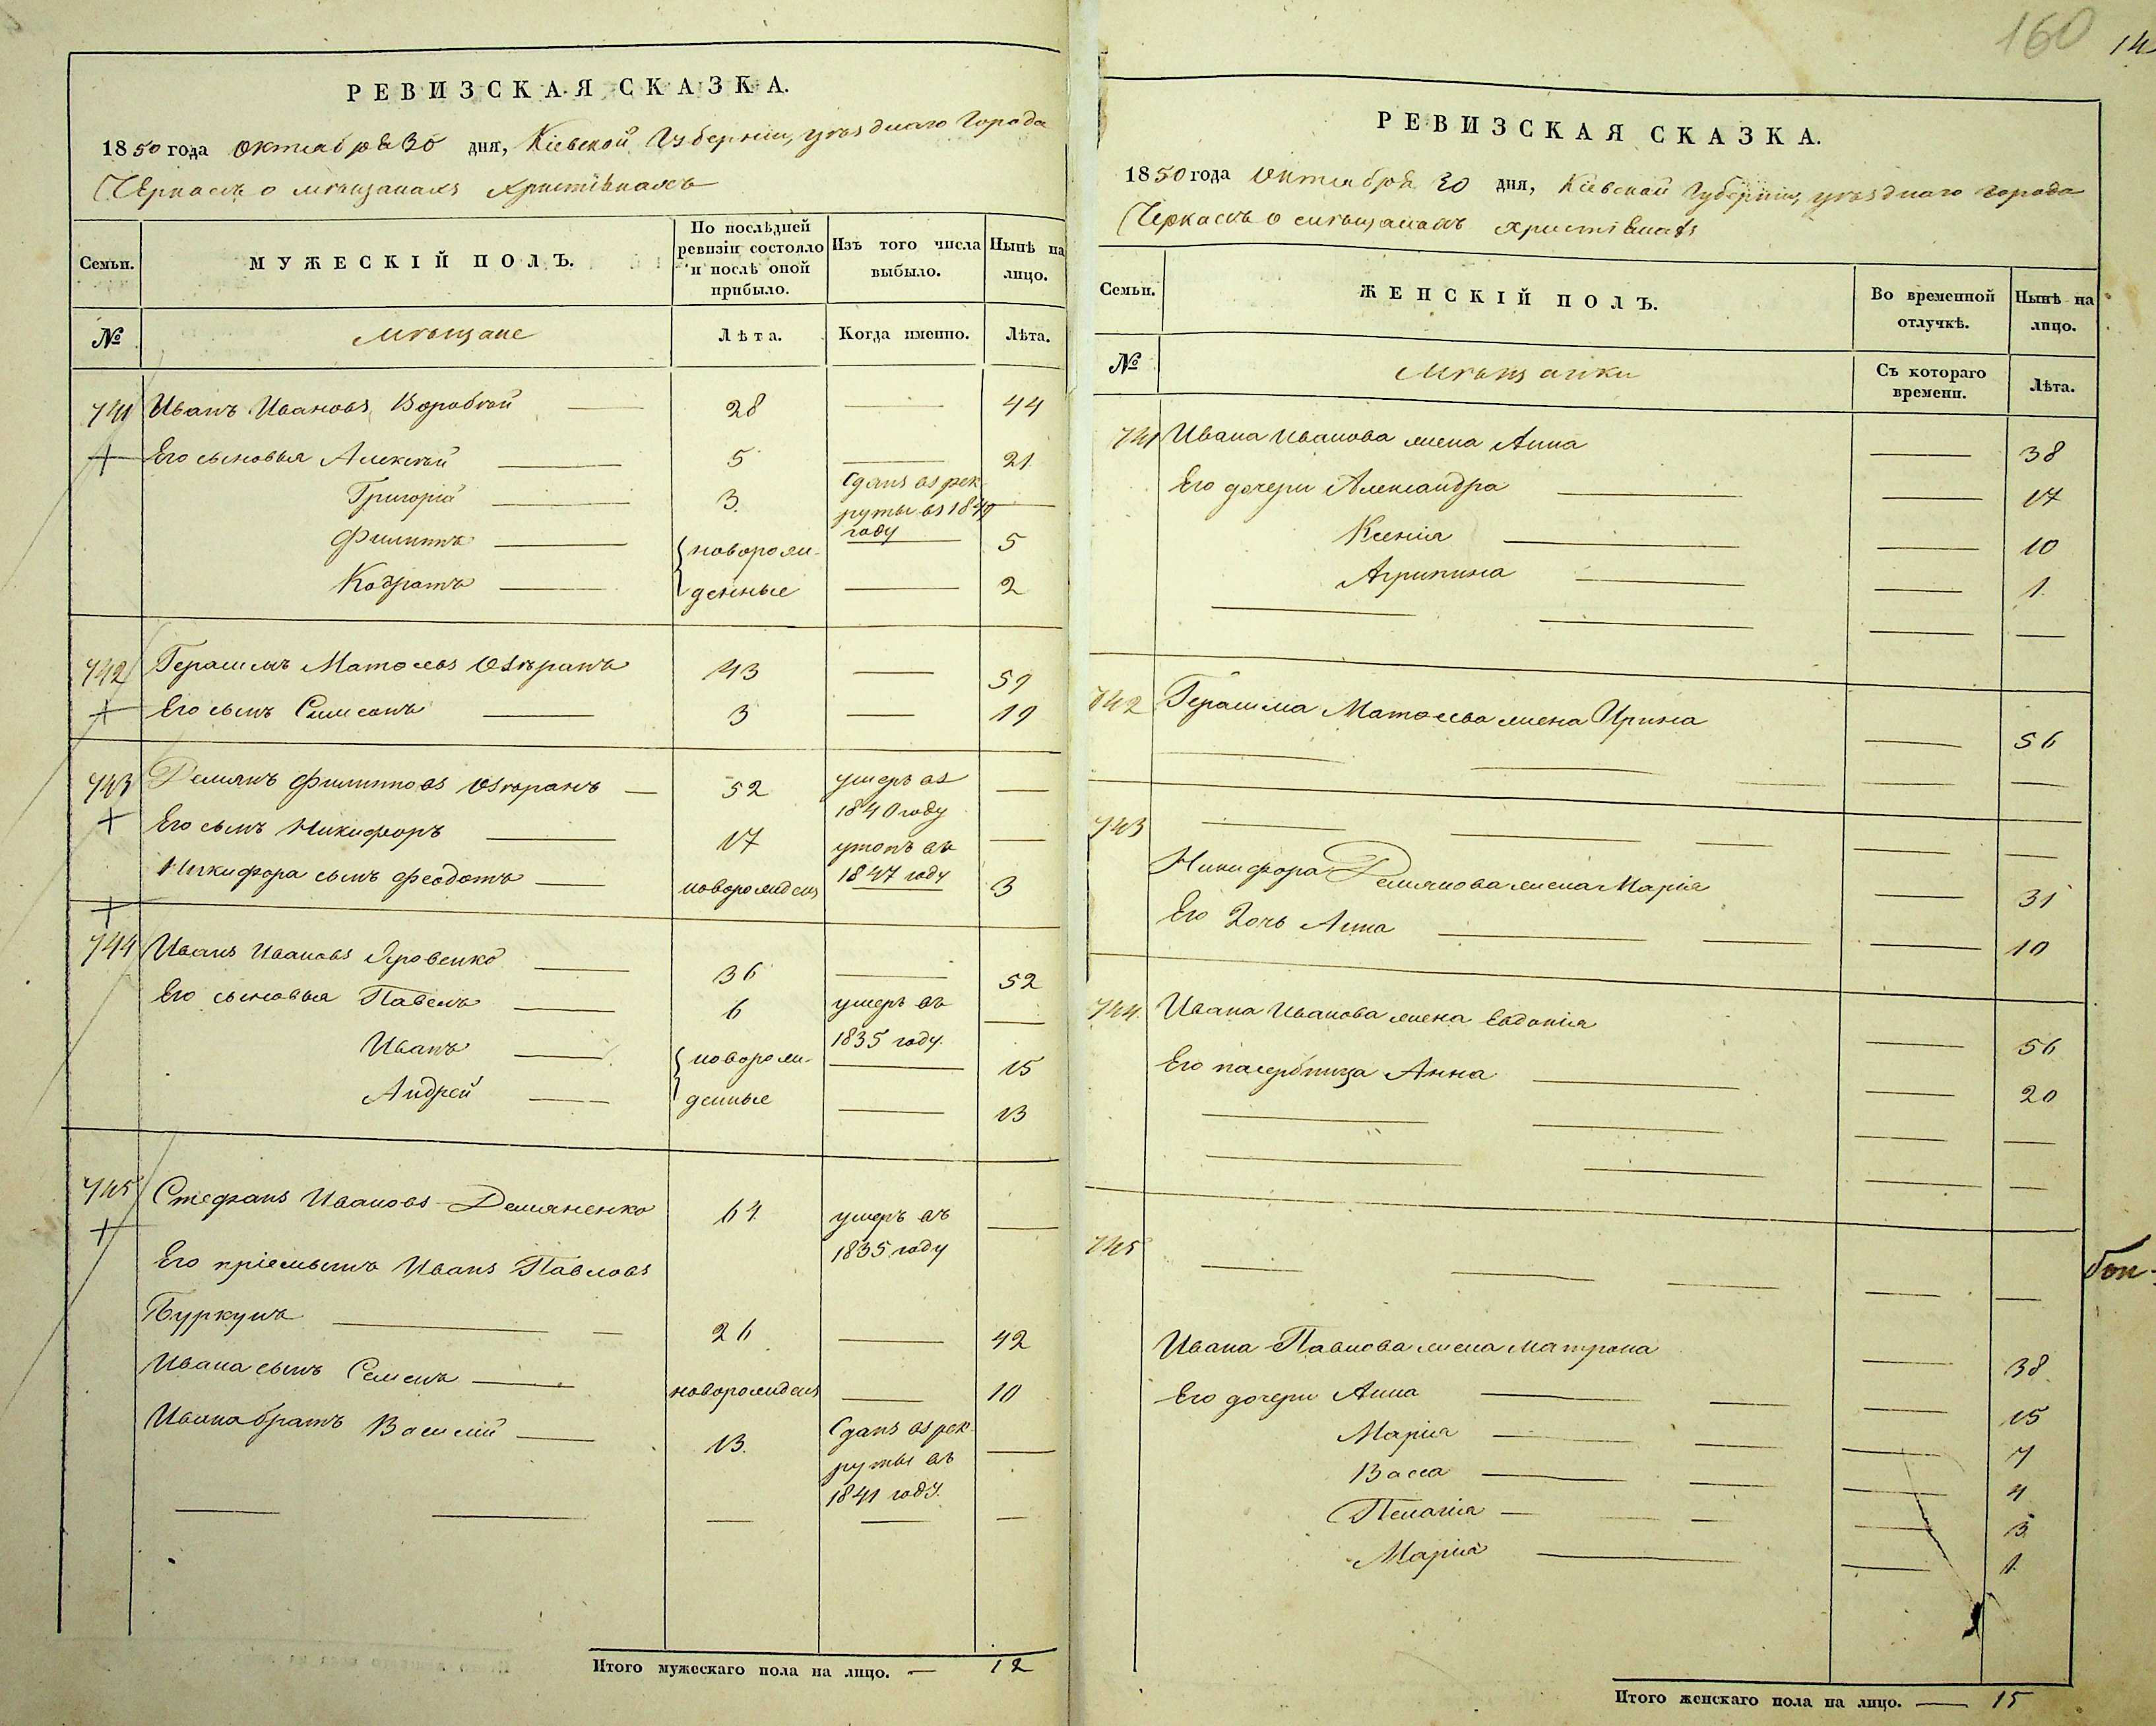 РЕВИЗСКАЯ СКАЗКА.
1850 года октября 30 дня, Кіевской Губерніи, уѣзднаго города
Черкасъ о мѣщанахъ христіянахъ
Семьи.
МУЖЕСКІЙ ПОЛЪ.
По послѣдней ревизіи состояло и послѣ оной прибыло.
Изъ того числа выбыло.
Нынѣ на лицо.
№
мѣщане
Лѣта.
Когда именно.
Лѣта.
741 Иванъ Ивановъ Воробѣй — 28 — 44
Его сыновья Алексѣй — 5 — 21
Григорій — 3. Сданъ въ рек-
руты въ 1849 —
году
Филиппъ — новорож- — 5
Кодратъ — денные — 2
742 Герасимъ Матѳеевъ Озѣранъ 43 — 59
Его сынъ Симеонъ — 3 — 19
743 Демянъ Филипповъ Озѣранъ — 52 умеръ въ —
1840 году
Его сынъ Никифоръ — 17 утопъ въ —
1847 году
Никифора сынъ Феодотъ — новорожденъ — 3
744 Иванъ Ивановъ Яровенко — 36 — 52
Его сыновья Павелъ — 6 умеръ въ —
1835 году.
Иванъ — новорож- — 15
Андрей — денные — 13
745 Стефанъ Ивановъ Демяненко 64 умеръ въ —
1835 году
Его пріемышъ Иванъ Павловъ
Буркунъ — 26 — 42
Ивана сынъ Семенъ — новорожденъ — 10
Ивана братъ Василій — 13. Сданъ въ рек- —
руты въ
1841 году.
Итого мужескаго пола на лицо. — 12
160
14
РЕВИЗСКАЯ СКАЗКА.
1850 года октября 30 дня, Кіевской Губерніи, уѣзднаго города
Черкасъ о мѣщанахъ христіянахъ
Семьи.
ЖЕНСКІЙ ПОЛЪ.
Во временной отлучкѣ.
Нынѣ на лицо.
№
Мѣщанки
Съ котораго времени.
Лѣта.
741 Ивана Иванова жена Анна — 38
Его дочери Александра — 17
Ксенія — 10
Агрипина — 1.
742 Герасима Матѳеева жена Ирина — 56
743
Никифора Демянова жена Марія — 31
Его дочь Анна — 10
744 Ивана Иванова жена Евдокія — 56
Его пасербница Анна — 20
745
Ивана Павлова жена Матрона — 38.
Его дочери Анна — 15
Марія — 7
Васса — 4
Пелагія — 3.
Марія — 1.
Итого женскаго пола на лицо. — 15